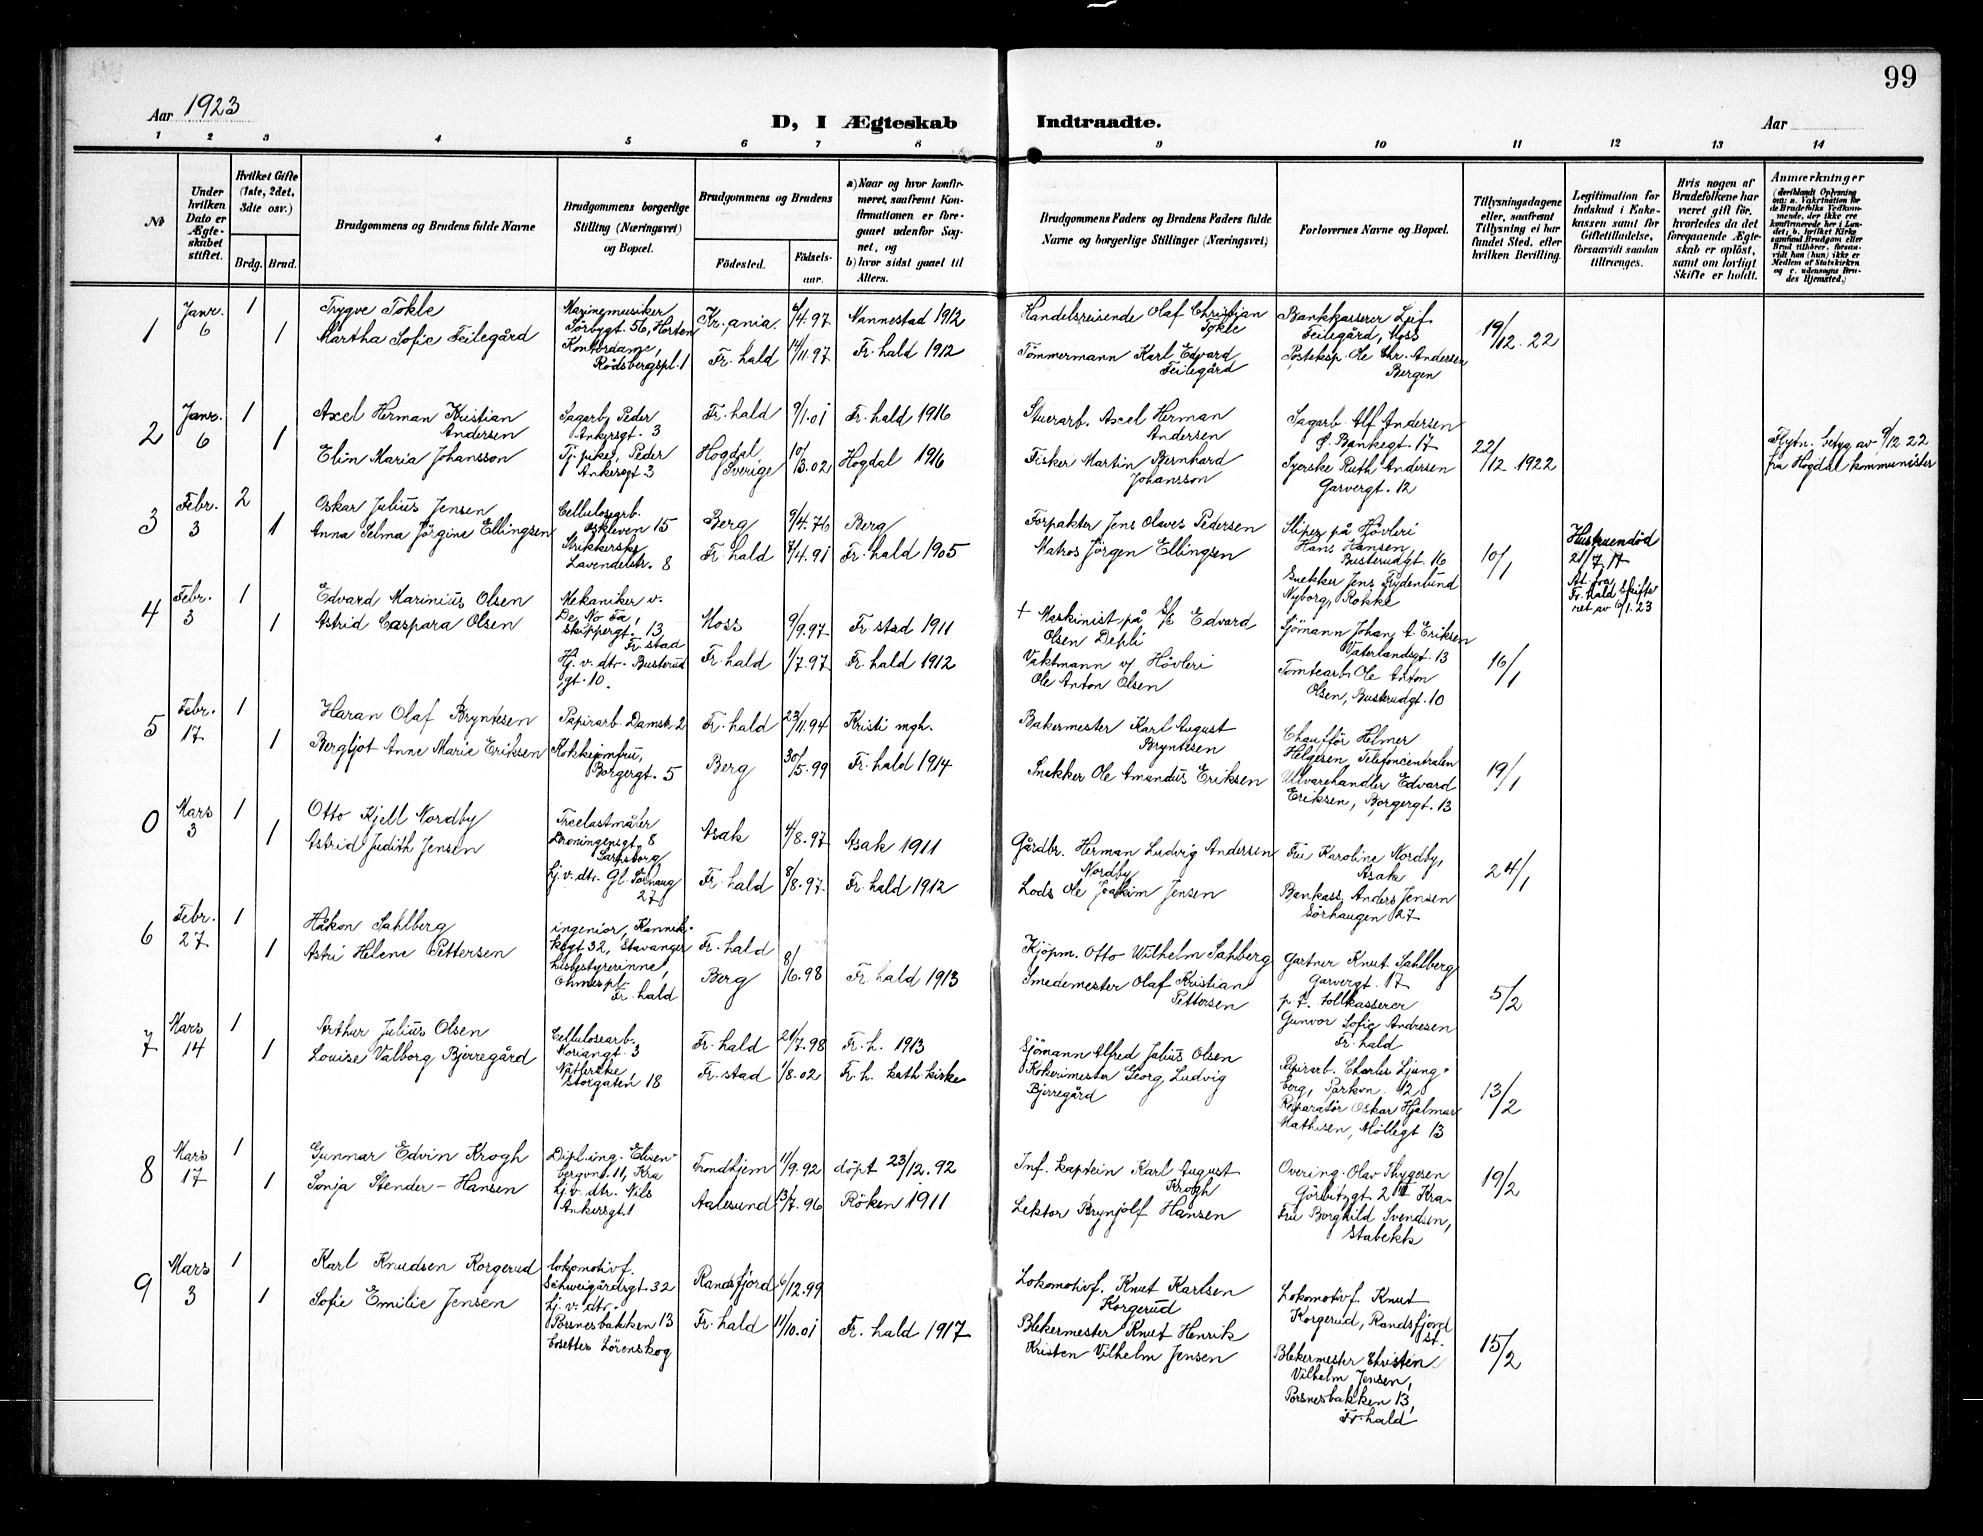 99
Aar 1923
D, I Ægteskab Indtraadte.
Aar
1 2 3 4 5 6 7 8 9 10 11 12 13 14
No
Under hvilken Dato er Ægteskabet stiftet.
Hvilket Gifte (1ste, 2det, 3dte osv.)
Brdg. Brud.
Brudgommens og Brudens fulde Navne
Brudgommens borgerlige Stilling (Næringsvei) og Bopæl.
Brudgommens og Brudens
Födested.
Födselsaar.
a) Naar og hvor konfirmeret, saafremt Konfirmationen er foregaaet udenfor Sognet, og
b) hvor sidst gaaet til Alters.
Brudgommens Faders og Brudens Faders fulde Navne og borgerlige Stillinger (Næringsvei)
Forlovernes Navne og Bopæl.
Tillysningsdagene eller, saafremt Tillysning ei har fundet Sted, efter hvilken Bevilling.
Legitimation for Indskud i Enkekassen samt for Giftetilladelse, forsaavidt saadan tiltrænges.
Hvis nogen af Brudefolkene har været gift för, hvorledes da det foregaaende Ægteskab er oplöst, samt om lovligt Skifte er holdt.
Anmærkninger
(deriblandt Oplysning om: a. Vakcination for de Brudefolks Vedkommende, der ikke ere konfirmerede her i Landet; b. hvilket Kirkesamfund Brudgom eller Brud tilhörer, forsaavidt han (hun) ikke er Medlem af Statskirken og c. udensogns Brudes Hjemsted.)
1
Janr. 6
1
1
Trygve Tokle
Martha Sofie Feilegård
Marinemusiker
Sørbygt. 56, Horten
Kontordame,
Rødsbergspl. 1
Kr.ania.
Fr.hald
6/4.97
14/11.97
Nannestad 1912
Fr.hald 1912
Handelsreisende Olaf Christian
Tokle
Tömmermann Karl Edvard
Feilegård
Bankkasserer Leif
Feilegård, Moss
Posteksp. Ole Chr. Andersen
Bergen
19/12.22
2
Janr. 6
1
1
Axel Herman Kristian
Andersen
Elin Maria Johansson
Sagarb. Peder
Ankersgt. 3
Tj. pike, Peder
Ankersgt 3
Fr.hald
Hogdal,
Sverige
9/1.01
10/3.02
Fr.hald 1916
Hogdal 1916
Stuerarb. Axel Herman
Andersen
Fisker Martin Bernhard
Johansson
Sagarb. Alf Andersen
Ø. Bankegt. 17
Syerske Ruth Andersen
Garvergt. 12
22/12 1922
Flytn. betyg av 9/12 22
fra Hogdal kommunister
3
Febr. 3
2
1
Oskar Julius Jensen
Anna Selma Jörgine Ellingsen
Cellulosearb.
Oskleven 15
Strikkerske
Lavendelstr. 8
Berg
Fr.hald
9/4.76
7/4.91
Berg
Fr.hald 1905
Forpakter Jens Olaves Pedersen
Matros Jörgen Ellingsen
Sliper på Hövleri
Hans Hansen
Busterudgt. 16
Snekker Jens Flydenlund
Nyborg, Rokke
10/1
Hustruen död
21/7 17
At. fra
Fr.hald Skifte
ret av 6/1.23
4
Febr. 3
1
1
Edvard Marinius Olsen
Astrid Caspara Olsen
Mekaniker v.
De No Fa,
Skippergt. 13
Fr.stad
Hj. v. dtr. Busterud
gt. 10.
Moss
Fr.hald
9/9.97
1/7.97
Fr.stad 1911
Fr.hald 1912
+ Maskinist på S/S Edvard
Olsen Depli
Vaktmann v/ Hövleri
Ole Anton Olsen
Sjömann Johan A. Eriksen
Vaterlandsgt. 13
Tomtearb. Ole Anton
Olsen, Busterudgt. 10
16/1
5
Febr. 17
1
1
Haran Olaf Bryntesen
Bergljot Anne Marie Eriksen
Papirarb. Damsk. 2
Kokkejomfru,
Borgergt. 5
Fr.hald
Berg
23/11.94
30/5.99
Kristi mgh.
Fr.hald 1914
Bakermester Karl August
Bryntesen
Snekker Ole Amundus Eriksen
Chauffør Helmer
Helgesen, Telefoncentralen
Ullvarehandler Edvard
Eriksen, Borgergt. 13
19/1
0
Mars 3
1
1
Otto Kjell Nordby
Astrid Judith Jensen
Trælastmåler
Dronningensgt. 8
Sarpsborg
Hj. v. dtr. Gl. Sörhaug
27
Asak
Fr.hald
4/8.97
8/8.97
Asak 1911
Fr.hald 1912
Gårdbr. Herman Ludvig Andersen
Nordby
Lods Ole Joakim Jensen
Fru Karoline Nordby,
Asak
Bankass. Anders Jensen
Sörhaugen 27
24/1
6
Febr. 27
1
1
Håkon Sahlberg
Astri Helene Pettersen
ingeniør, Kannik-
kegt 32, Stavanger
Husbestyrerinne,
Ohmespl.
Fr.hald
Fr.hald
Berg
8/6.98
Fr.hald 1913
Kjöpm. Otto Wilhelm Sahlberg
Smedemester Olaf Kristian
Pettersen
Gartner Knut Sahlberg
Garvergt. 17
p.t. tollkasserer
Gunvor Sofie Andresen
Fr.hald
5/2
7
Mars 14
1
1
Arthur Julius Olsen
Louise Valborg Bjerregård
Cellulosearb.
Noriangt. 3
Nätlerske
Storgaten 18
Fr.hald
Fr.stad
21/7.98
1/8.02
Fr.h. 1913
Fr.h. kath. kirke
Sjömann Alfred Julius Olsen
Kokerimester Georg Ludvig
Bjerregård
Papirarb. Charles Ljung-
berg, Parkvn. 12
Reparatør Oskar Hjalmar
Mathisen, Møllegt 13
13/2
8
Mars 17
1
1
Gunnar Edvin Krogh
Sonja Stender-Hansen
Dipl.ing. Elisen-
bergvnt. 11, Kra
Hj. v. dtr. Nils
Ankersgt. 1
Trondhjem
Aalesund
11/9.92
13/7.96
döpt 23/12.92
Röken 1911
Inf. kaptein Karl August
Krogh
Lektor Brynjolf Hansen
Overing. Olav Thygesen
Görbitzgt 2 III Kra-
Fru Borghild Svendsen,
Stabekk
19/2
9
Mars 3
1
1
Karl Knudsen Korgerud
Sofie Emilie Jensen
Lokomotivf.
Schweigårdsgt. 32
Hj. v. dtr.
Porsnesbakken 13
bosetter Lörenskog
Randsfjord
Fr.hald
6/12.99
11/10.01
Fr.hald 1917
Lokomotivf. Knut Karlsen
Korgerud
Blekermester Knut Henrik
Kristen Vilhelm Jensen
Lokomotivf. Knut
Korgerud, Randsfjord
st.
Blekermester Christen
Vilhelm Jensen,
Porsnesbakken 13,
Fr.hald
15/2